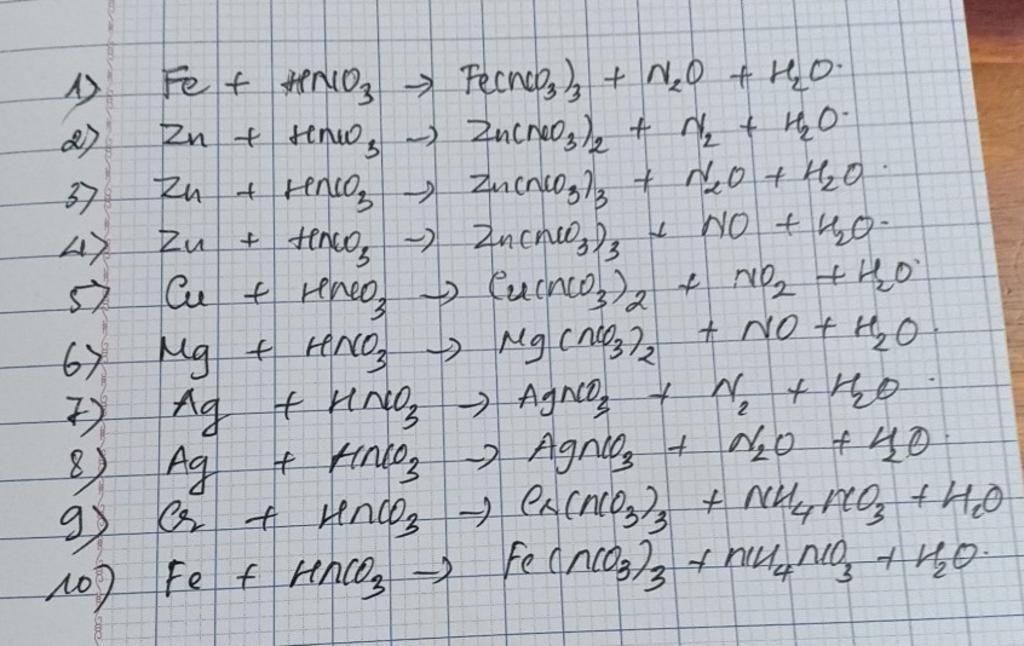 1) Fe + HNO3 → Fe(NO3)3 + N2O + H2O.
2) Zn + HNO3 → Zn(NO3)2 + N2 + H2O.
3) Zn + HNO3 → Zn(NO3)3 + N2O + H2O.
4) Zn + HNO3 → Zn(NO3)3 + NO + H2O.
5) Cu + HNO3 → Cu(NO3)2 + NO2 + H2O.
6) Mg + HNO3 → Mg(NO3)2 + NO + H2O.
7) Ag + HNO3 → AgNO3 + N2 + H2O.
8) Ag + HNO3 → AgNO3 + N2O + H2O.
9) Cr + HNO3 → Cr(NO3)3 + NH4NO3 + H2O
10) Fe + HNO3 → Fe(NO3)3 + NH4NO3 + H2O.